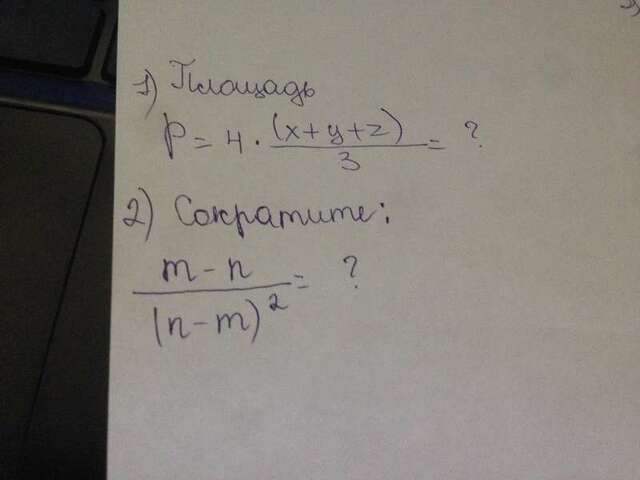 1) Площадь
P = 4 · (x+y+z)/3 = ?
2) Сократите:
m - n/(n-m)² = ?